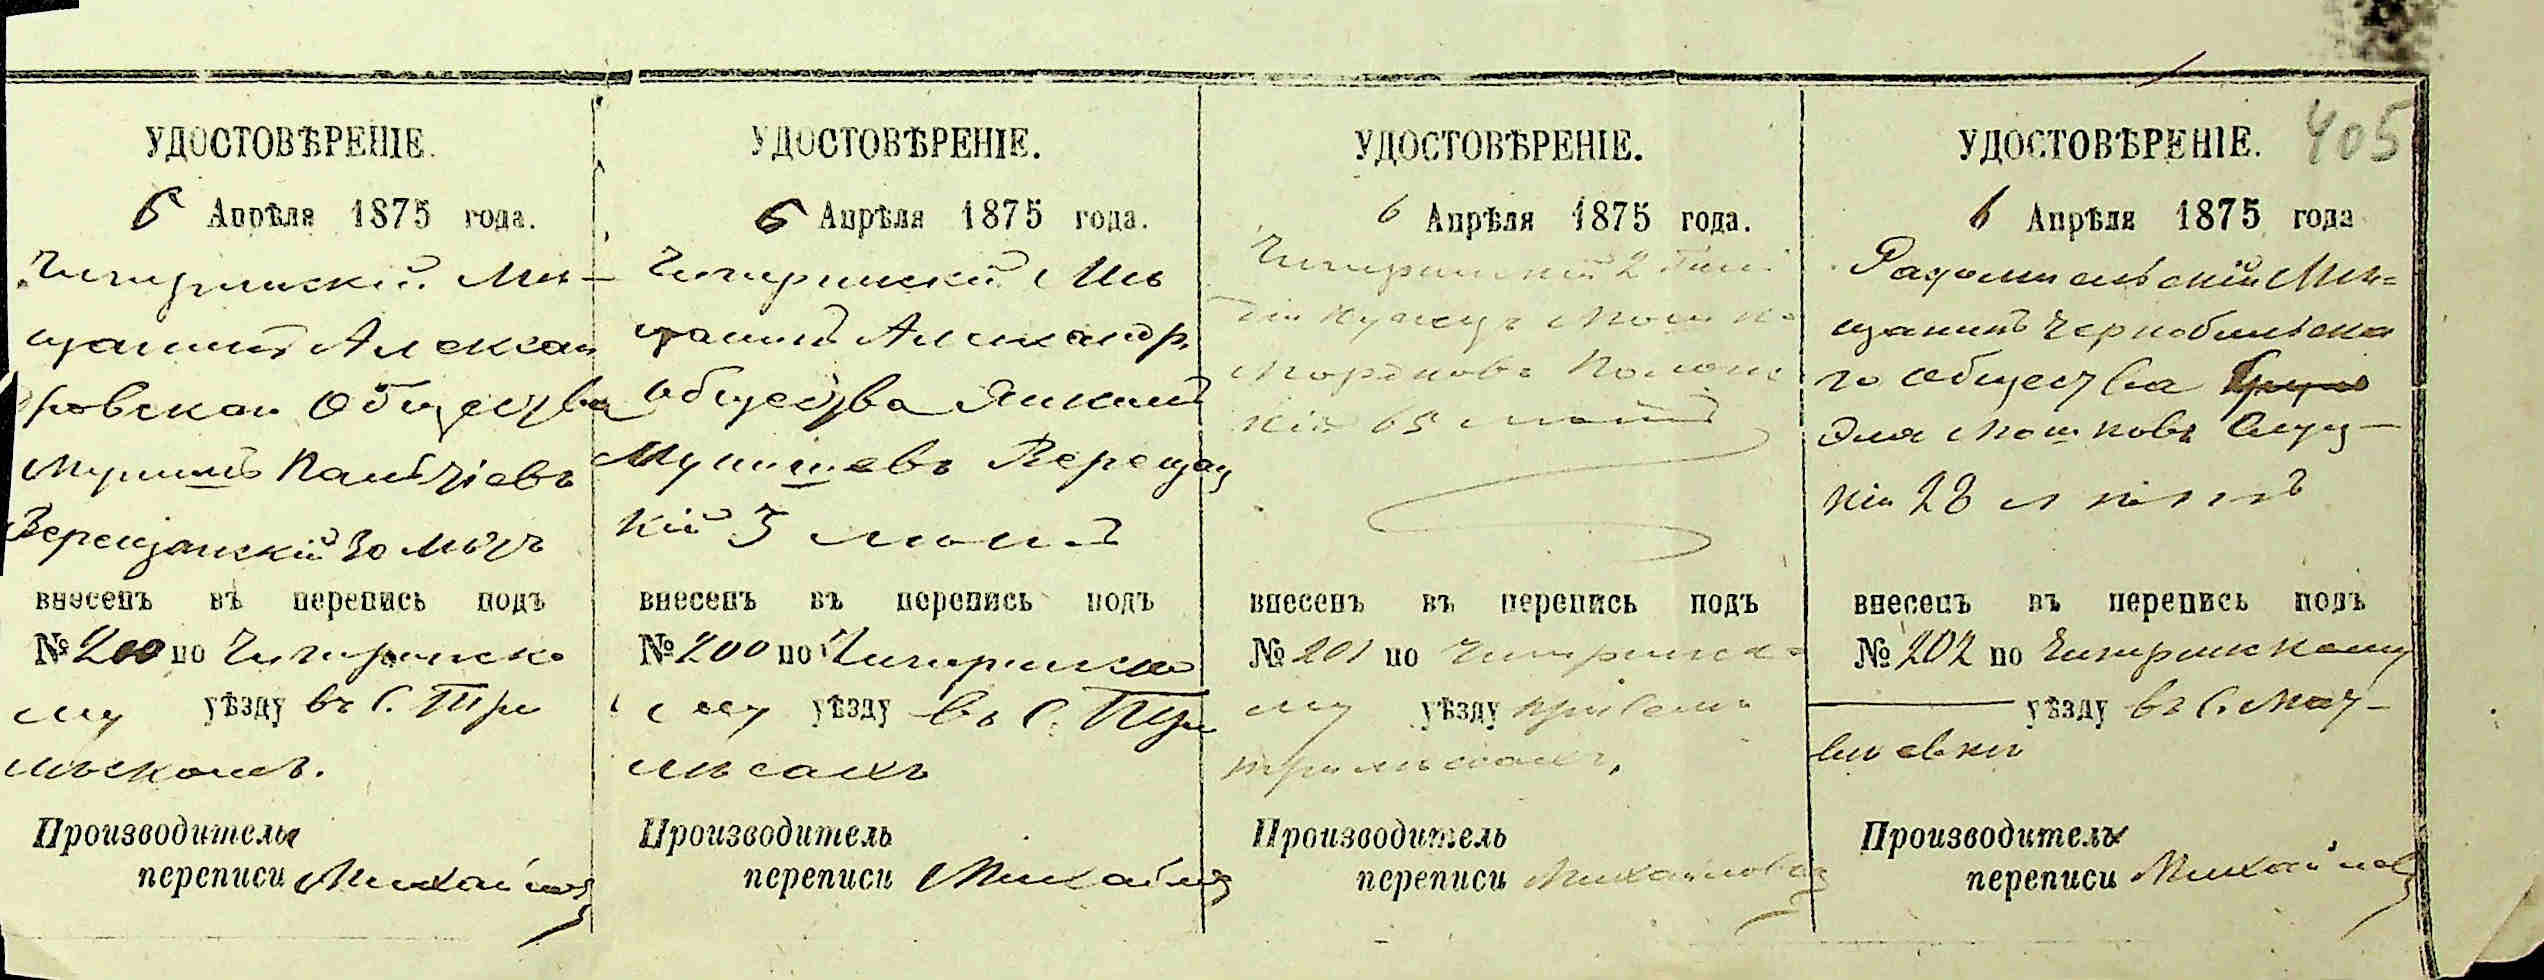 405
УДОСТОВѢРЕНІЕ.
6 Апрѣля 1875 года.
Чигиринскій Мѣ-
щанинъ Алексан
ровскаи общества
Верещанскій 30 лѣтъ
внесенъ въ перепись подъ
№ 200 по Чигиринско
му уѣзду въ С. Три
лѣскахъ.
Производитель
переписи Михайлов
УДОСТОВѢРЕНІЕ.
6 Апрѣля 1875 года.
Чигиринскій Мѣ
щанинъ Александр.
общества
Верещан
кій 5
внесенъ въ перепись подъ
№ 200 по Чигиринско
му уѣзду въ С. Три
лѣсахъ
Производитель
переписи Михайлов
УДОСТОВѢРЕНІЕ.
6 Апрѣля 1875 года.
Чигиринскій 2 Гил
діи купецъ Мошко
Мордковъ Полонс
кій 65 лѣтъ
внесенъ въ перепись подъ
№ 201 по Чигиринско
му уѣзду
трилѣсахъ,
Производитель
переписи Михайлов
УДОСТОВѢРЕНІЕ.
6 Апрѣля 1875 года
Радомысльскій Мѣ-
щанинъ Чернобыльска
го общества
Эля Мошковъ Слуц-
кій 28 лѣтъ
внесенъ въ перепись подъ
№ 202 по Чигиринскому
уѣзду въ С. Мат-
вѣевкѣ
Производитель
переписи Михайлов